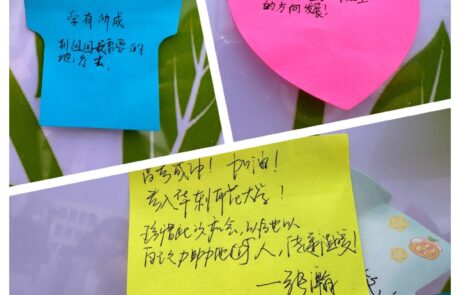 学有所成
到祖国最需要的
地方去.
的方向发展!
高考成冲! 加油!
考入华东师范大学!
珍惜此次机会,以后也以
己之力助力他人,传递温暖!
—张瀚